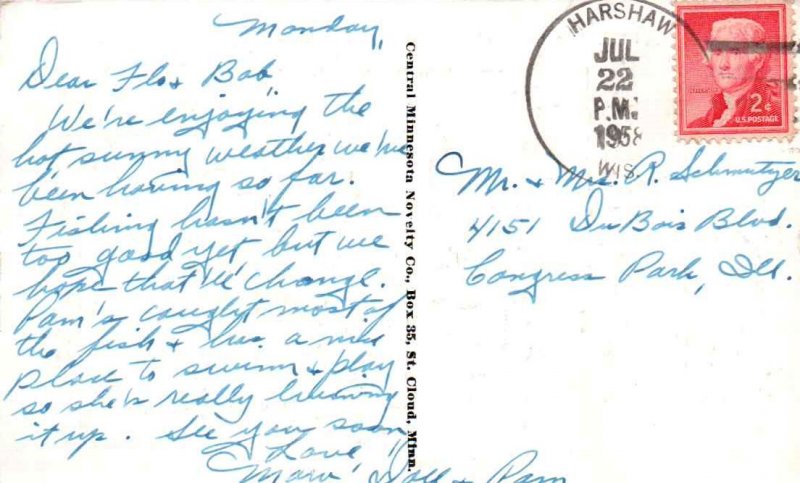 Monday,
Dear Flo & Bob
We're enjoying the
hot sunny weather we've
been having so far.
Fishing hasn't been
too good yet but we
hope that'll change.
Pam's caught most of
the fish & has a nice
place to swim & play
so she's really living
it up. See you soon,
Love,
Marv, Doll & Pam
Central Minnesota Novelty Co., Box 35, St. Cloud, Minn.
HARSHAW
JUL
22
P.M.
1958
WIS.
2¢
U.S. POSTAGE
Mr. & Mrs. R. Schmutzer
4151 DuBois Blvd.
Congress Park, Ill.